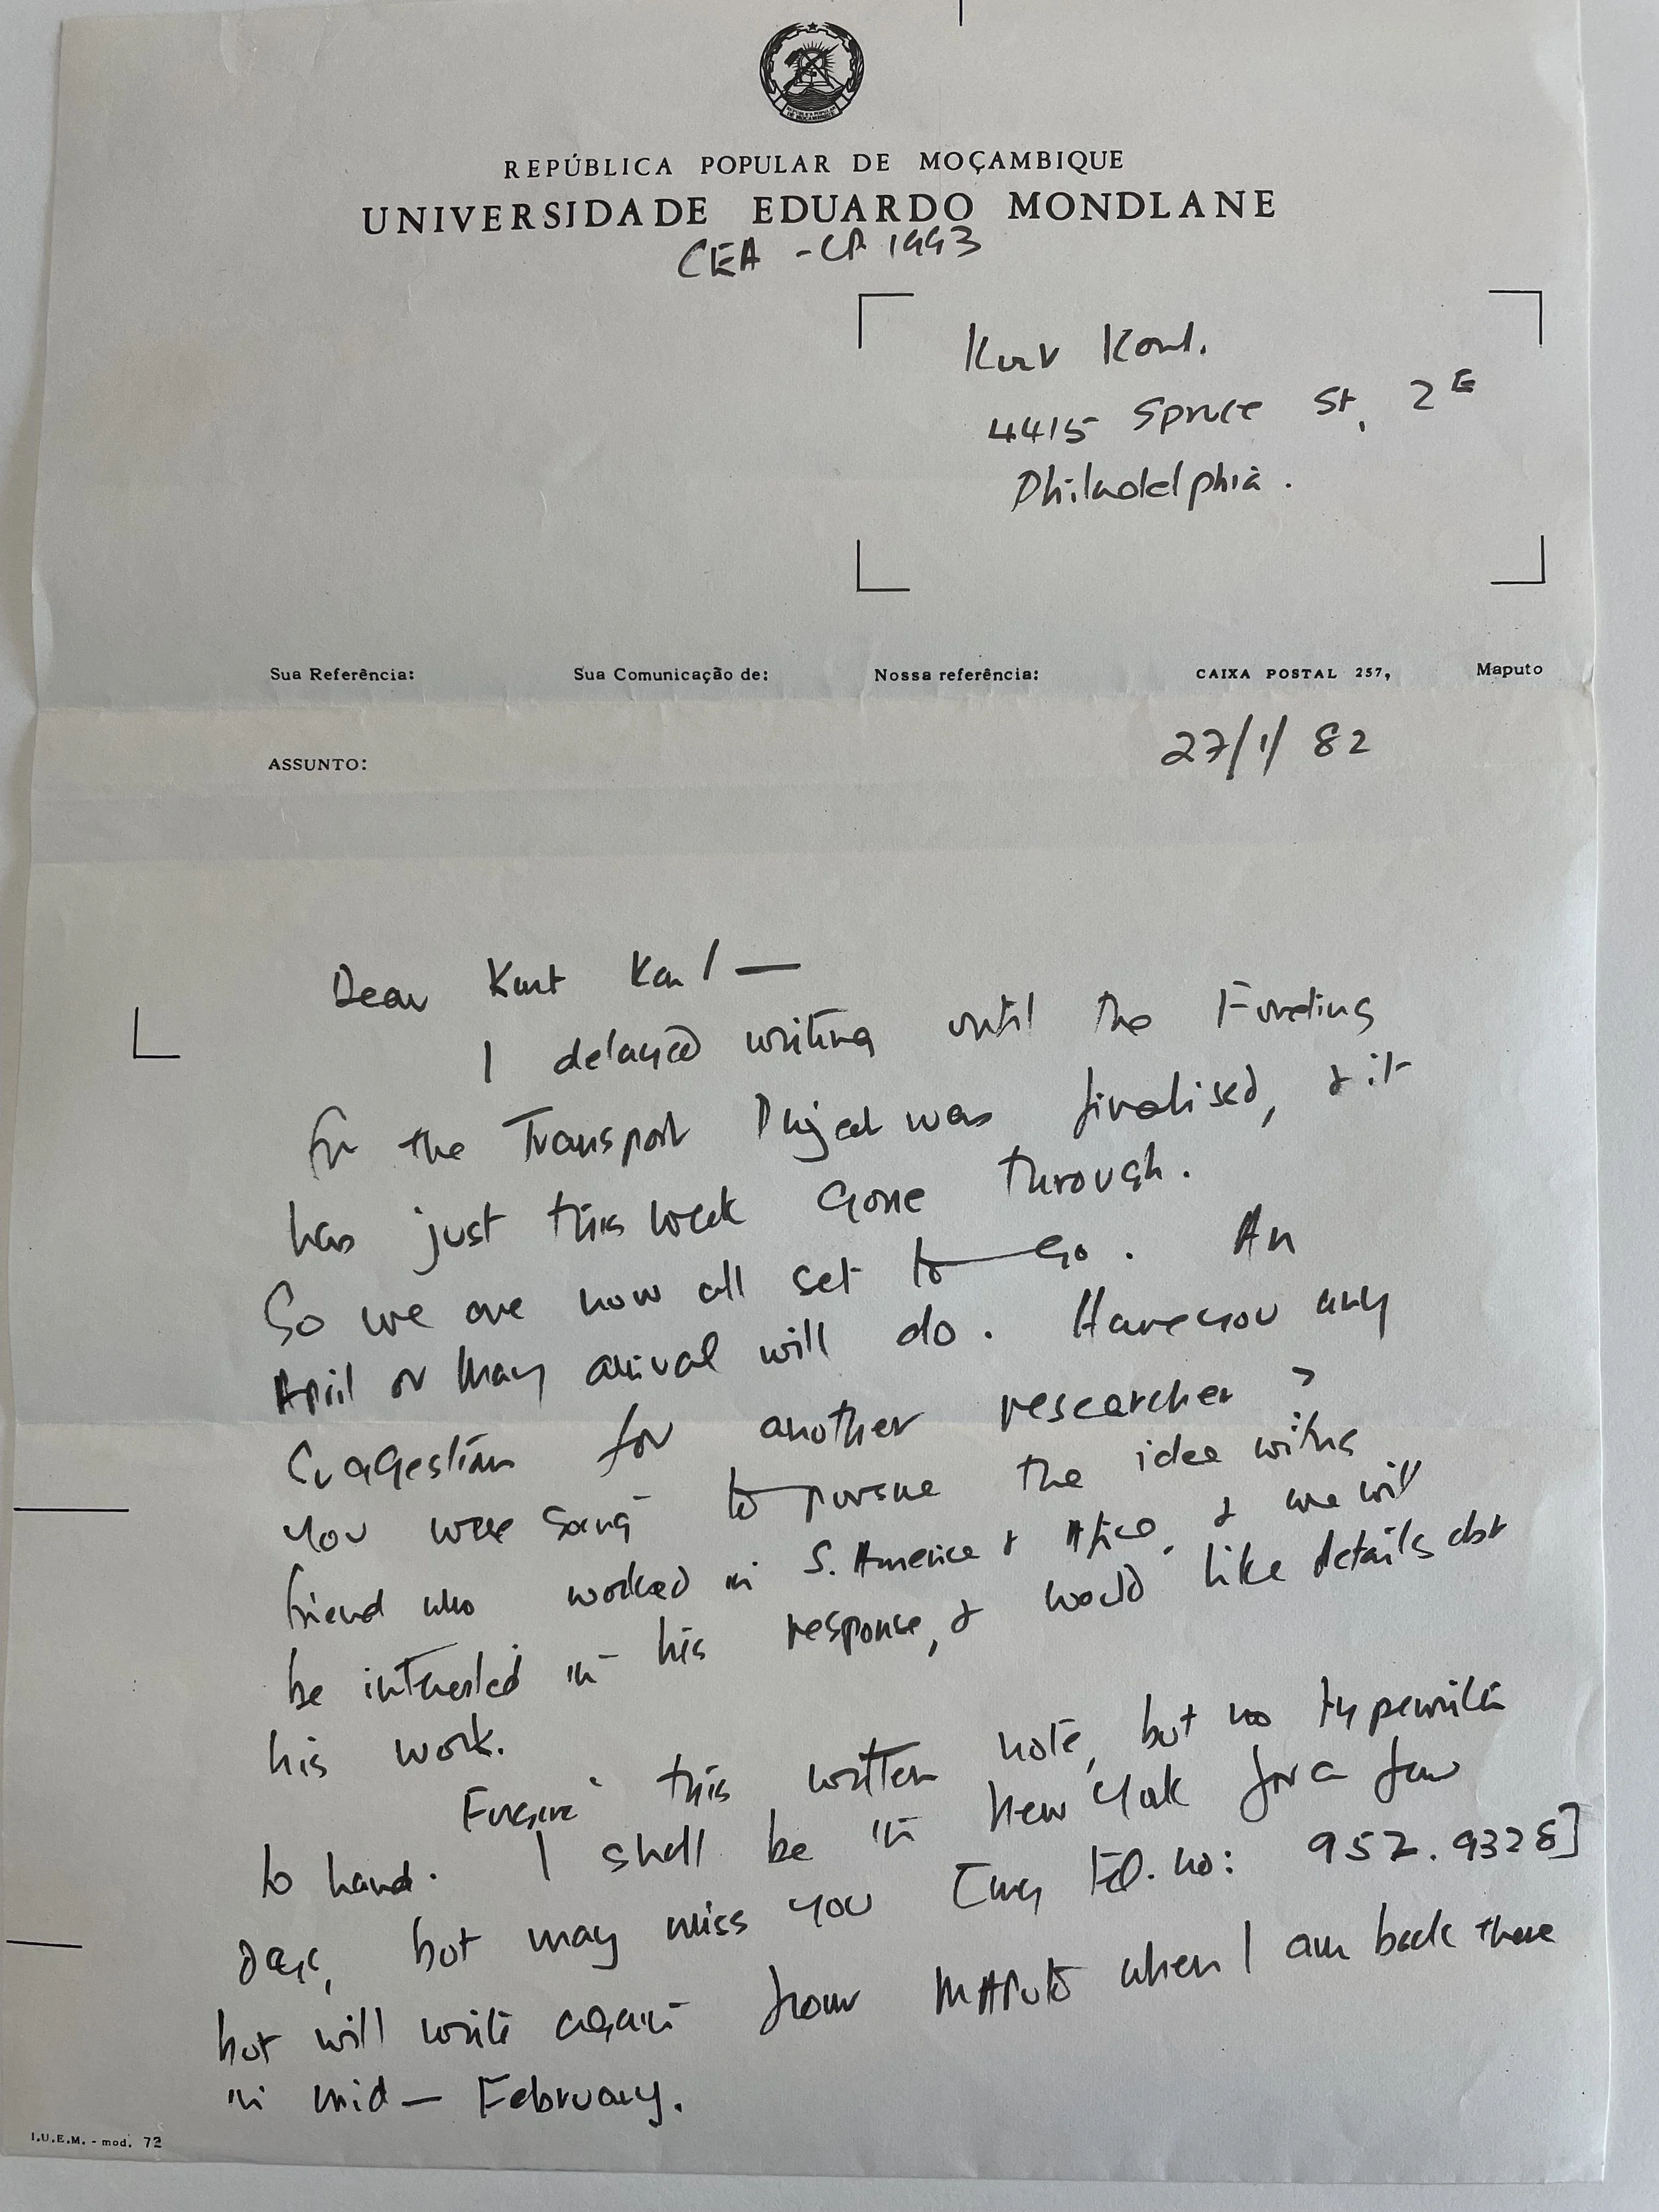 REPÚBLICA POPULAR DE MOÇAMBIQUE
UNIVERSIDADE EDUARDO MONDLANE
CEA - CP 1993
Kurt Karl.
4415 Spruce St, 2E
Philadelphia.
Sua Referência: Sua Comunicação de: Nossa referência: CAIXA POSTAL 257, Maputo
27/1/82
ASSUNTO:
Dear Kurt Karl —
I delayed writing until the Funding
for the Transport Project was finalised, & it
has just this week gone through.
So we are now all set to go. An
April or May arrival will do. Have you any
suggestions for another researcher?
You were going to pursue the idea with a
friend who worked in S. America & Africa, & we will
be interested in his response, & would like details abt
his work.
Forgive this written note, but no typewriter
to hand. I shall be in New York for a few
days, but may miss you [my tel. no: 952.9328]
but will write again from MAPUTO when I am back there
in mid - February.
I.U.E.M. - mod. 72